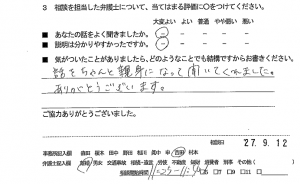 3 相談を担当した弁護士について、当てはまる評価に○をつけてください。
大変よい よい 普通 やや悪い 悪い
■ あなたの話をよく聞きましたか。
■ 説明は分かりやすかったですか。
■ 気がついたことがありましたら、どのようなことでも結構ですからお書きください。
話をちゃんと親身になって聞いてくれました。
ありがとうございます。
ご協力ありがとうございました。
相談日 27.9.12
事務局記入欄
弁護士記入欄 離婚 男女 交通事故 相続・遺言 労働 不動産 消費者 刑事 その他( )
相談開始時間